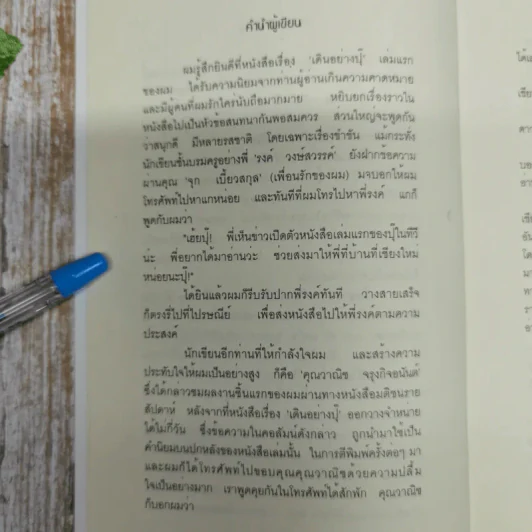 คำนำผู้เขียน
ผมรู้สึกยินดีที่หนังสือเรื่อง 'เดินอย่างปุ๊' เล่มแรก
ของผม ได้รับความนิยมจากท่านผู้อ่านเกินความคาดหมาย
และมีผู้คนที่ผมรักใคร่นับถือมากมาย หยิบยกเรื่องราวใน
หนังสือไปเป็นหัวข้อสนทนากันพอสมควร ส่วนใหญ่จะพูดกัน
ว่าสนุกดี มีหลายรสชาติ โดยเฉพาะเรื่องขำขัน แม้กระทั่ง
นักเขียนชั้นบรมครูอย่างพี่ 'รงค์ วงษ์สวรรค์' ยังฝากข้อความ
ผ่านคุณ 'จุก เบี้ยวสกุล' (เพื่อนรักของผม) มาบอกให้ผม
โทรศัพท์ไปหาแกหน่อย และทันทีที่ผมโทรไปหาพี่รงค์ แกก็
พูดกับผมว่า
"เฮ้ยปุ๊! พี่เห็นข่าวเปิดตัวหนังสือเล่มแรกของปุ๊ในทีวี
น่ะ พี่อยากได้มาอ่านวะ ช่วยส่งมาให้พี่ที่บ้านที่เชียงใหม่
หน่อยนะปุ๊!"
ได้ยินแล้วผมก็รีบรับปากพี่รงค์ทันที วางสายเสร็จ
ก็ตรงรี่ไปที่ไปรษณีย์ เพื่อส่งหนังสือไปให้พี่รงค์ตามความ
ประสงค์
นักเขียนอีกท่านที่ให้กำลังใจผม และสร้างความ
ประทับใจให้ผมเป็นอย่างสูง ก็คือ 'คุณวาณิช จรุงกิจอนันต์'
ซึ่งได้กล่าวชมผลงานชิ้นแรกของผมผ่านทางหนังสือมติชนราย
สัปดาห์ หลังจากที่หนังสือเรื่อง 'เดินอย่างปุ๊' ออกวางจำหน่าย
ได้ไม่กี่วัน ซึ่งข้อความในคอลัมน์ดังกล่าว ถูกนำมาใช้เป็น
คำนิยมบนปกหลังของหนังสือเล่มนั้น ในการตีพิมพ์ครั้งต่อๆ มา
และผมก็ได้โทรศัพท์ไปขอบคุณคุณวาณิชด้วยความปลื้ม
ใจเป็นอย่างมาก เราพูดคุยกันในโทรศัพท์ได้สักพัก คุณวาณิช
ก็บอกผมว่า